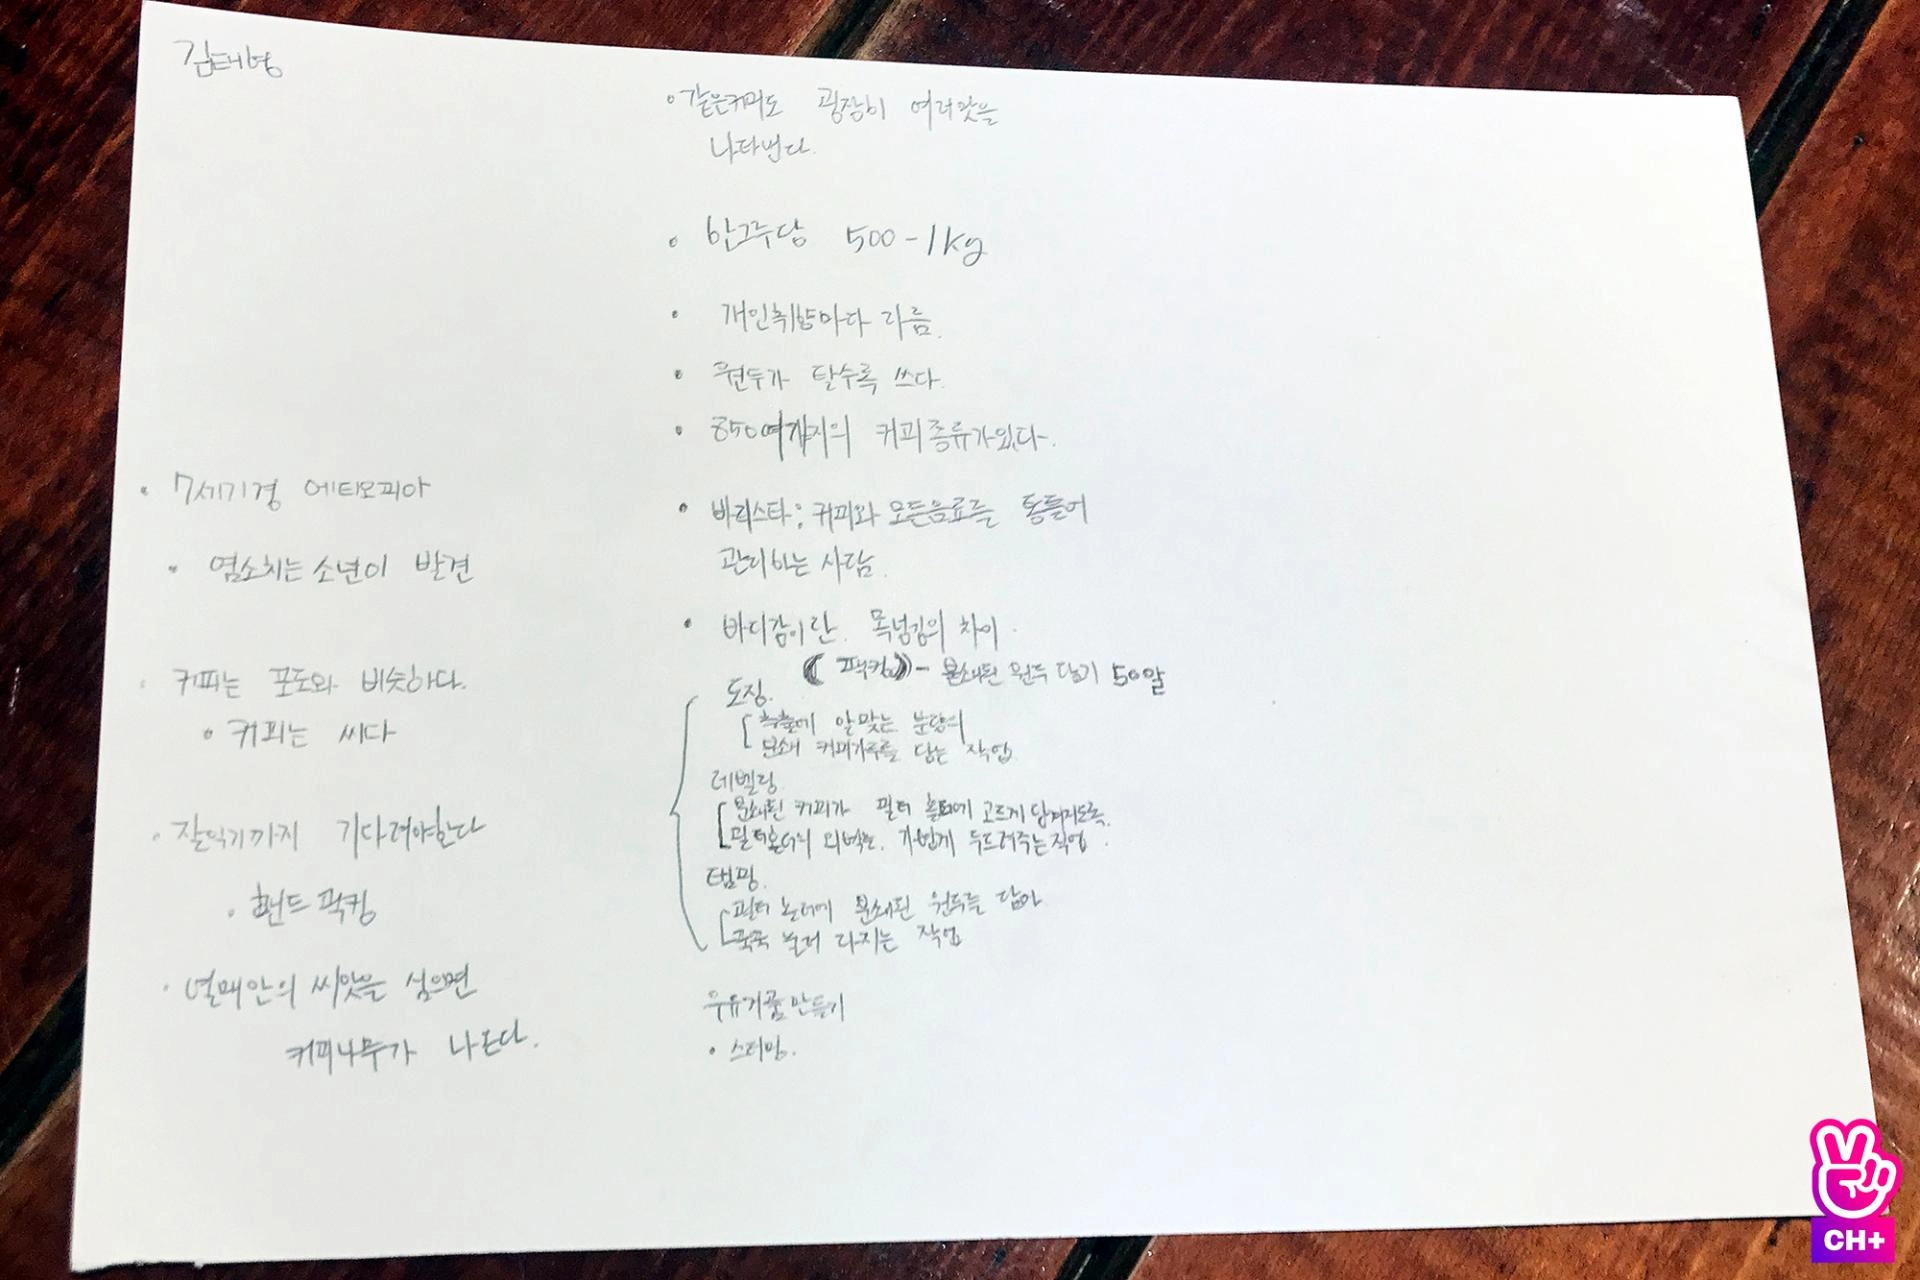 김태형
• 7세기경 에티오피아
• 염소치는 소년이 발견
• 커피는 포도와 비슷하다.
• 커피는 씨다
• 잘익기까지 기다려야한다
• 핸드 픽킹
• 열매안의 씨앗을 심으면
커피나무가 나온다.
• 같은커피도 굉장히 여러맛을
나타낸다.
• 한그루당 500-1kg
• 개인취향마다 다름.
• 원두가 탈수록 쓰다.
• 850여가지의 커피종류가있다.
• 바리스타; 커피와 모든음료를 통틀어
관리하는 사람.
• 바디감이란. 목넘김의 차이.
(팩킹) - 분쇄된 원두 담기 50알
도징.
추출에 알맞는 분량의
분쇄 커피가루를 담는 작업
레벨링
분쇄된 커피가 필터 홀더에 고르게 담겨지도록.
필터홀더의 외벽을. 가볍게 두드려주는작업.
탬핑.
필터 홀더에 분쇄된 원두를 담아
꾹꾹 눌러 다지는 작업
우유거품만들기
• 스티밍.
CH+